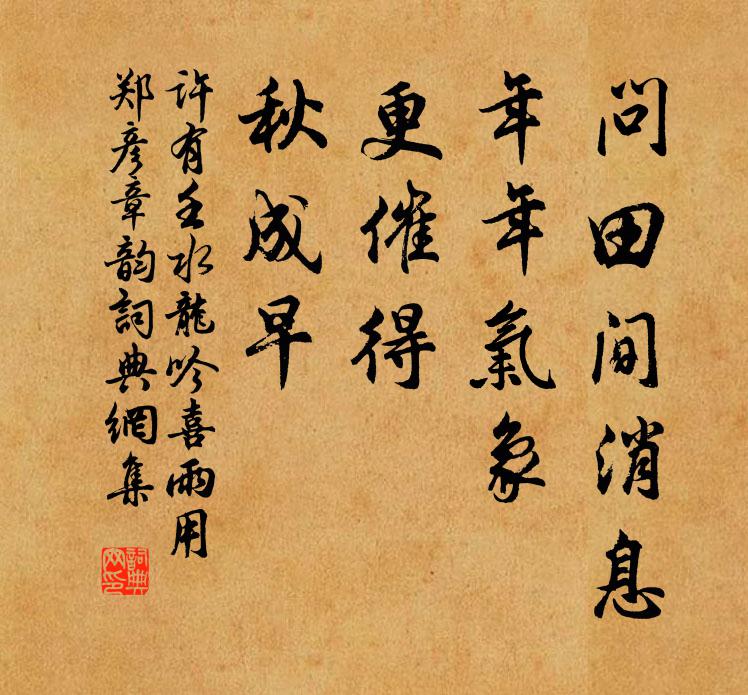 問田間消息
年年氣象
更催得
秋成早
許有壬水龍吟喜雨用
郑彦章韵詞典網集
詞典網印